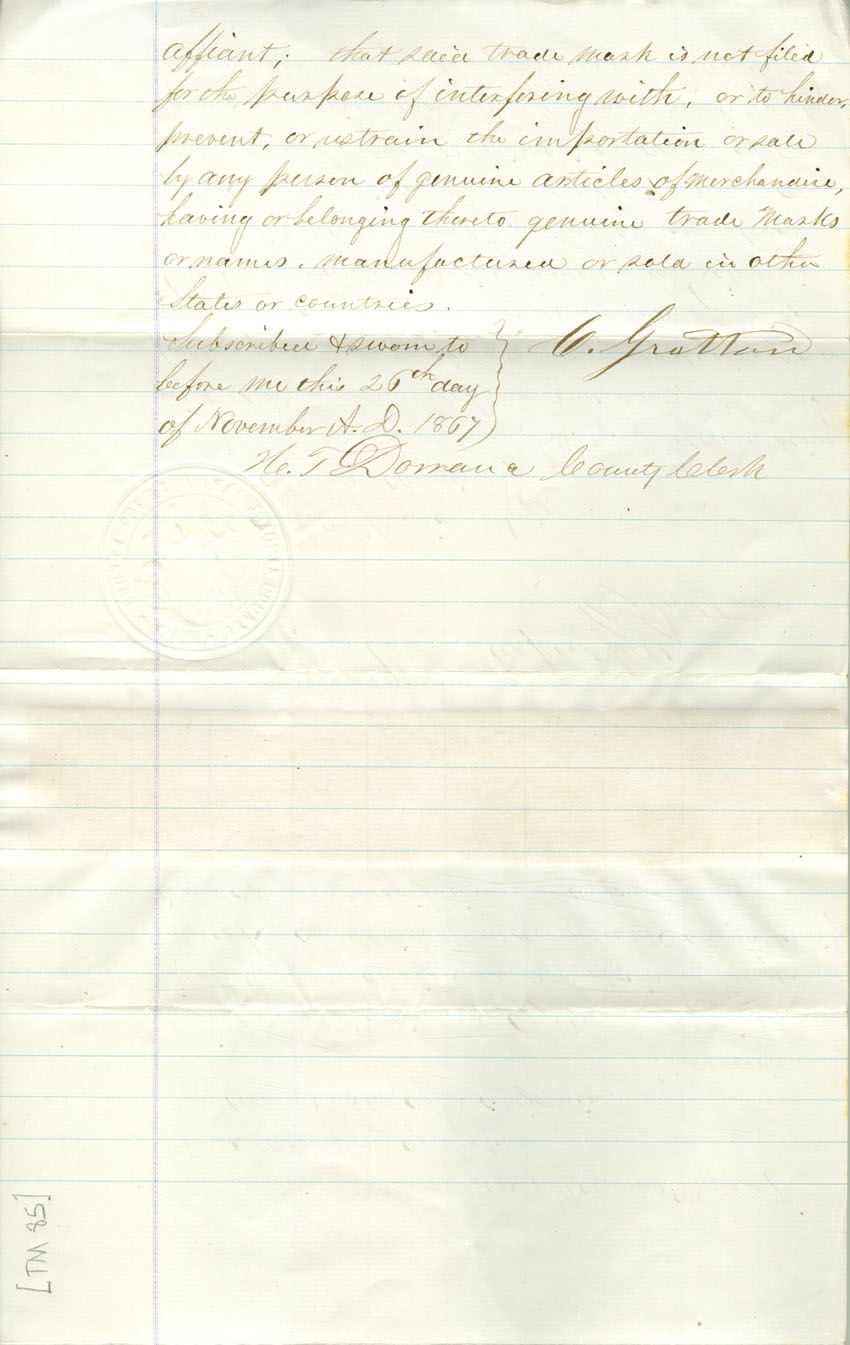 affiant; that said trade mark is not filed
for the purpose of interfering with, or to hinder,
prevent, or restrain the importation or sale
by any person of genuine articles of Merchandise,
having or belonging thereto genuine trade Marks
or names, manufactured or sold in other
States or countries.
Subscribed & sworn to
before me this 26th day
of November A. D. 1867
C. Gratton
H. T. Dorrance County Clerk
[TM 85]